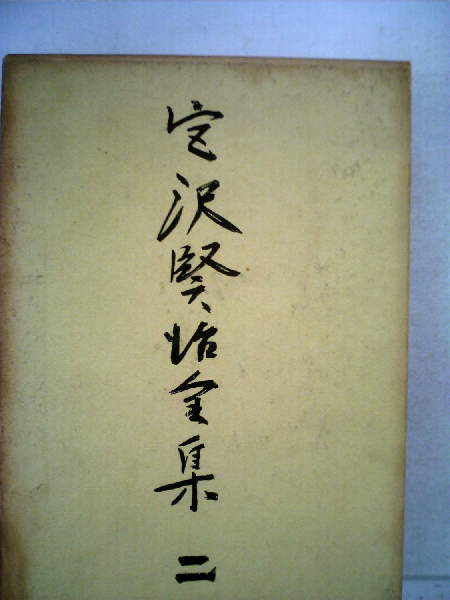 宮沢賢治全集 二